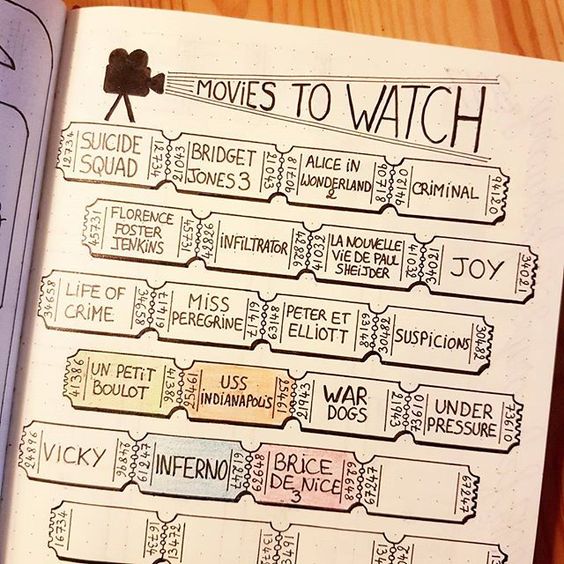 MOVIES TO WATCH
12734
SUICIDE
SQUAD
12734
21043
BRIDGET
JONES 3
21043
90718
ALICE IN
WONDERLAND
2
90718
94120
CRIMINAL
94120
45731
FLORENCE
FOSTER
JENKINS
45731
42826
INFILTRATOR
42826
41032
LA NOUVELLE
VIE DE PAUL
SHEIJDER
41032
34021
JOY
34021
34658
LIFE OF
CRIME
34658
61417
MISS
PEREGRINE
61417
63148
PETER ET
ELLIOTT
63148
30482
SUSPICIONS
30482
41386
UN PETIT
BOULOT
41386
25461
USS
INDIANAPOLIS
25461
21943
WAR
DOGS
21943
73610
UNDER
PRESSURE
73610
24896
VICKY
24896
61247
INFERNO
61247
62648
BRICE
DE NICE
3
62648
67247
67247
16734
16734
13472